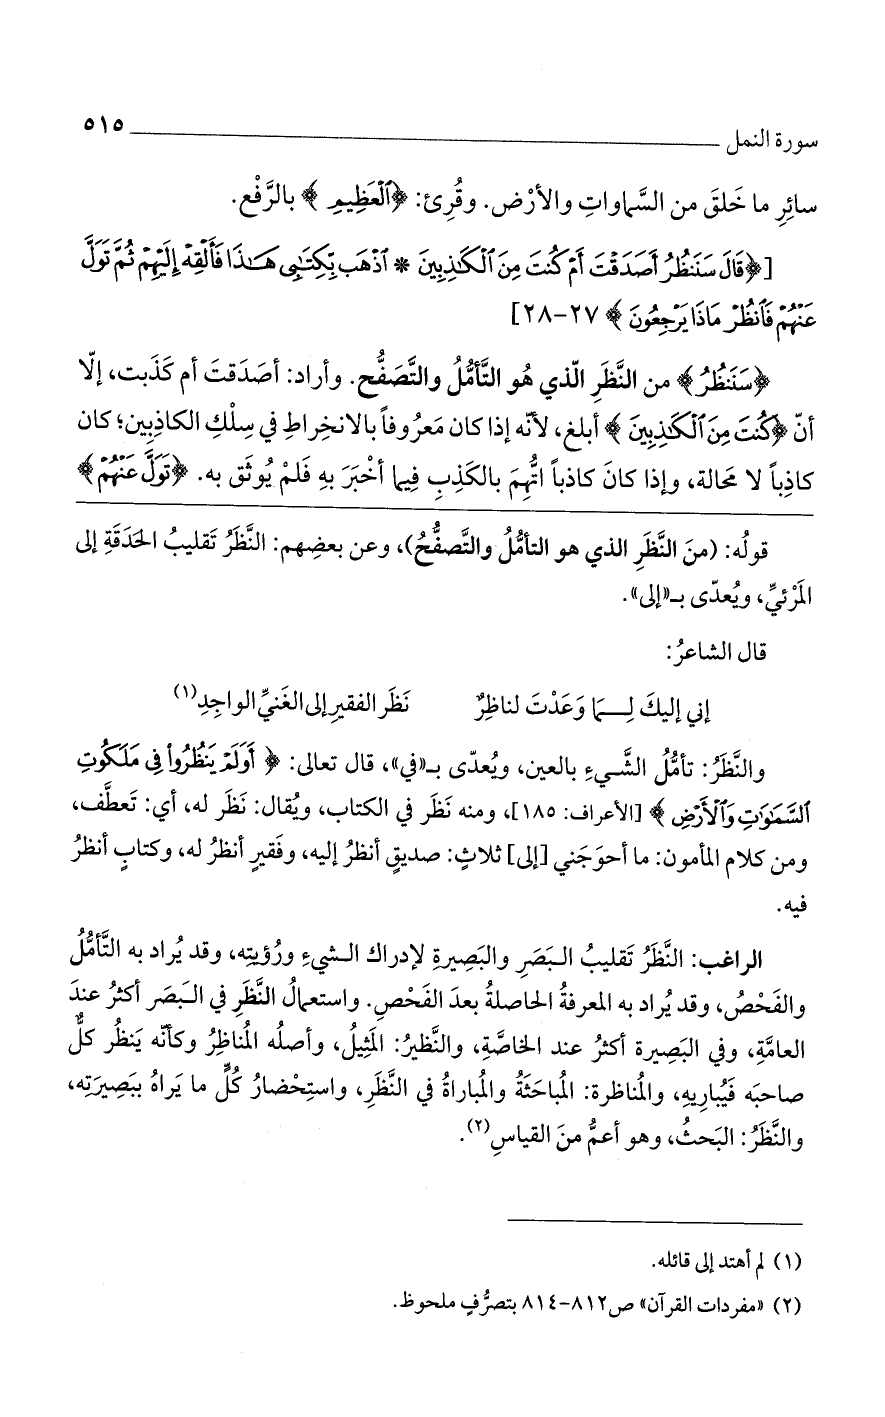 سورة النمل ٥١٥
سائِرِ ما خَلقَ من السَّماواتِ والأرْض. وقُرِئ: ﴿ٱلْعَظِيمِ﴾ بالرَّفْع.
[﴿قَالَ سَنَنظُرُ أَصَدَقْتَ أَمْ كُنتَ مِنَ ٱلْكَٰذِبِينَ * ٱذْهَب بِّكِتَٰبِى هَٰذَا فَأَلْقِهْ إِلَيْهِمْ ثُمَّ تَوَلَّ
عَنْهُمْ فَٱنظُرْ مَاذَا يَرْجِعُونَ﴾ ٢٧-٢٨]
﴿سَنَنظُرُ﴾ من النَّظَرِ الّذي هُو التَّأمُّلُ والتَّصَفُّح. وأراد: أصَدَقتَ أم كَذَبت، إلّا
أنّ ﴿كُنتَ مِنَ ٱلْكَٰذِبِينَ﴾ أبلغ، لأنّه إذا كان مَعرُوفاً بالانخِراطِ في سِلْكِ الكاذِبِين؛ كان
كاذِباً لا مَحَالة، وإذا كانَ كاذباً اتُّهِمَ بالكَذِبِ فِيما أخْبَرَ بهِ فَلمْ يُوثَق به. ﴿تَوَلَّ عَنْهُمْ﴾
قولُه: (منَ النَّظَرِ الذي هو التأمُّلُ والتَّصفُّحُ)، وعن بعضِهم: النَّظَرُ تَقليبُ الحَدَقَةِ إلى
المَرْئيِّ، ويُعدّى بـ«إلى».
قال الشاعرُ:
إني إليكَ لِـمَا وَعَدْتَ لناظِرٌ نَظَر الفقيرِ إلى الغَنيِّ الواجِدِ(١)
والنَّظَرُ: تأمُّلُ الشَّيءِ بالعين، ويُعدّى بـ«في»، قال تعالى: ﴿أَوَلَمْ يَنظُرُوا۟ فِى مَلَكُوتِ
ٱلسَّمَٰوَٰتِ وَٱلْأَرْضِ﴾ [الأعراف: ١٨٥]، ومنه نَظَر في الكتاب، ويُقال: نَظَر له، أي: تَعطَّف،
ومن كلام المأمون: ما أحوَجَني [إلى] ثلاثٍ: صديقٍ أنظرُ إليه، وفَقيرٍ أنظرُ له، وكتابٍ أنظرُ
فيه.
الراغب: النَّظَرُ تَقليبُ البَصَرِ والبَصِيرةِ لإدراك الشيءِ ورُؤيتِه، وقد يُراد به التَّأمُّلُ
والفَحْصُ، وقد يُراد به المعرفةُ الحاصلةُ بعدَ الفَحْصِ. واستعمالُ النَّظَرِ في البَصَر أكثرُ عندَ
العامَّةِ، وفي البَصِيرة أكثرُ عند الخاصَّةِ، والنَّظيرُ: المَثِيلُ، وأصلُه المُناظِرُ وكأنّه يَنظُر كلٌّ
صاحبَه فَيُبارِيهِ، والمُناظرة: المُباحَثَةُ والمُباراةُ في النَّظَرِ، واستِحْضارُ كُلِّ ما يَراهُ ببَصِيرَتِه،
والنَّظَرُ: البَحثُ، وهو أعمُّ منَ القياسِ(٢).
(١) لم أهتد إلى قائله.
(٢) «مفردات القرآن» ص٨١٢-٨١٤ بتصرُّفٍ ملحوظ.